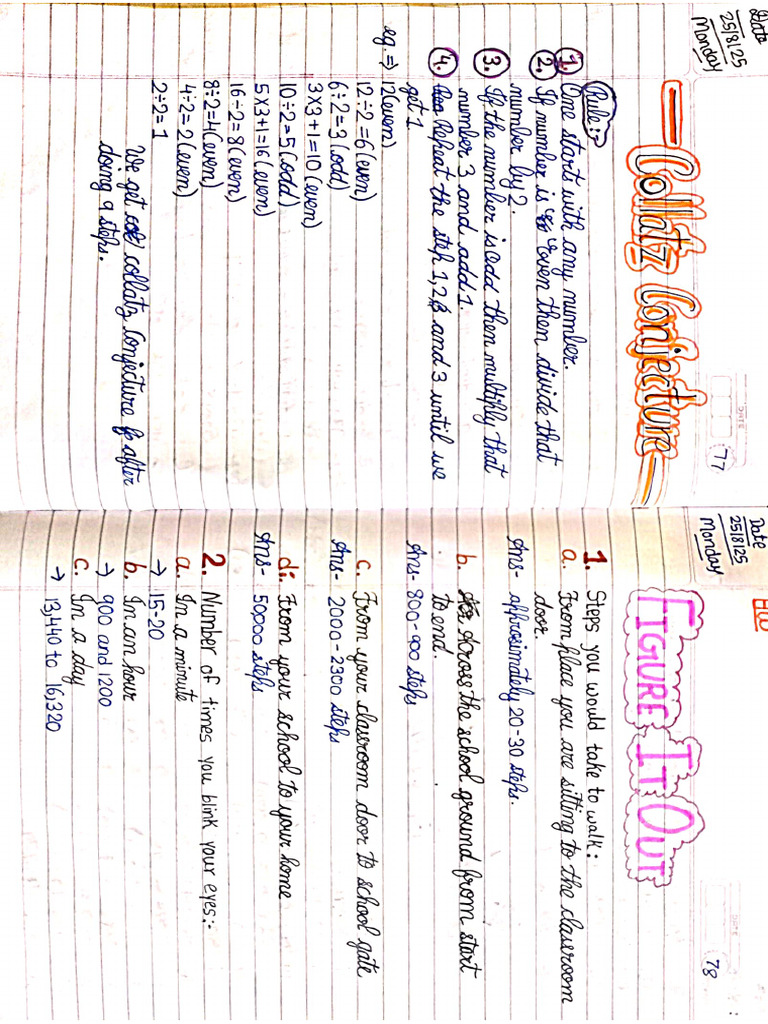 Date
25/8/25
Monday
77
Collatz Conjecture
Rule:-
1. One start with any number.
2. If number is even then divide that
number by 2.
3. If the number is odd then multiply that
number 3 and add 1.
4. Repeat the step 1,2, and 3 until we
get 1.
eg. ⇒ 12(even)
12÷2=6(even)
6÷2=3(odd)
3X3+1=10(even)
10÷2=5(odd)
5X3+1=16(even)
16÷2=8(even)
8÷2=4(even)
4÷2=2(even)
2÷2=1
We get collatz Conjecture after
doing 9 steps.
HW
Date
25/8/25
Monday
DATE
78
FIGURE IT OUT
1. Steps you would take to walk:
a. From place you are sitting to the classroom
door.
Ans- approximately 20-30 steps.
b. Across the school ground from start
to end.
Ans- 800-900 steps
c. From your classroom door to school gate
Ans- 2000-2300 steps
d. From your school to your home
Ans- 50000 steps
2. Number of times you blink your eyes:-
a. In a minute
→ 15-20
b. In an hour
→ 900 and 1200
c. In a day
→ 13,440 to 16,320